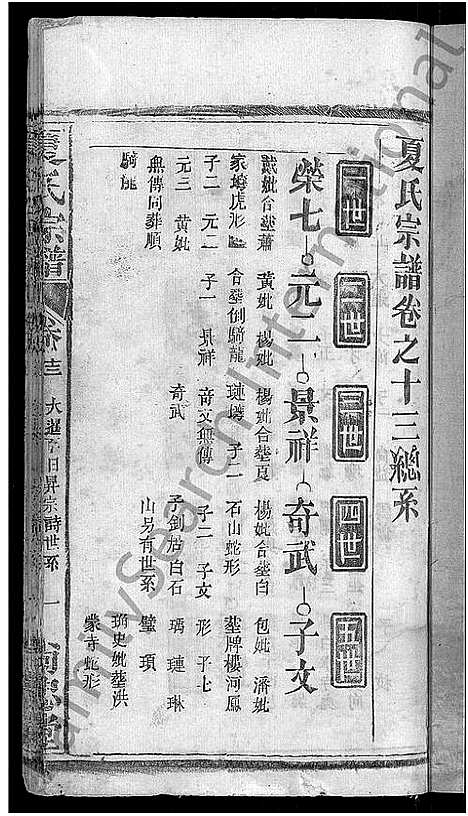 夏氏宗譜卷之十三總系
一世 二世 三世 四世 五世
榮七 元二 景祥 奇武 子文
戴妣合塟蕭 黃妣 楊妣 楊妣合塟夏 楊妣合塟白 包妣 潘妣
家塆虎形 合塟倒騎龍 塘塆 子二 石山蛇形 塟牌樓河鳳
子二 元二 子一 景祥 奇文無傳 子二 子文 形 子七
元三 黃妣 奇武 子釗 白石 璉 琳
無傳同葬順 山另有世系 璧 瑣
騎龍 史妣塟洪
家寺蛇形
夏氏宗譜
卷十三
世系 一
FamilySearch International